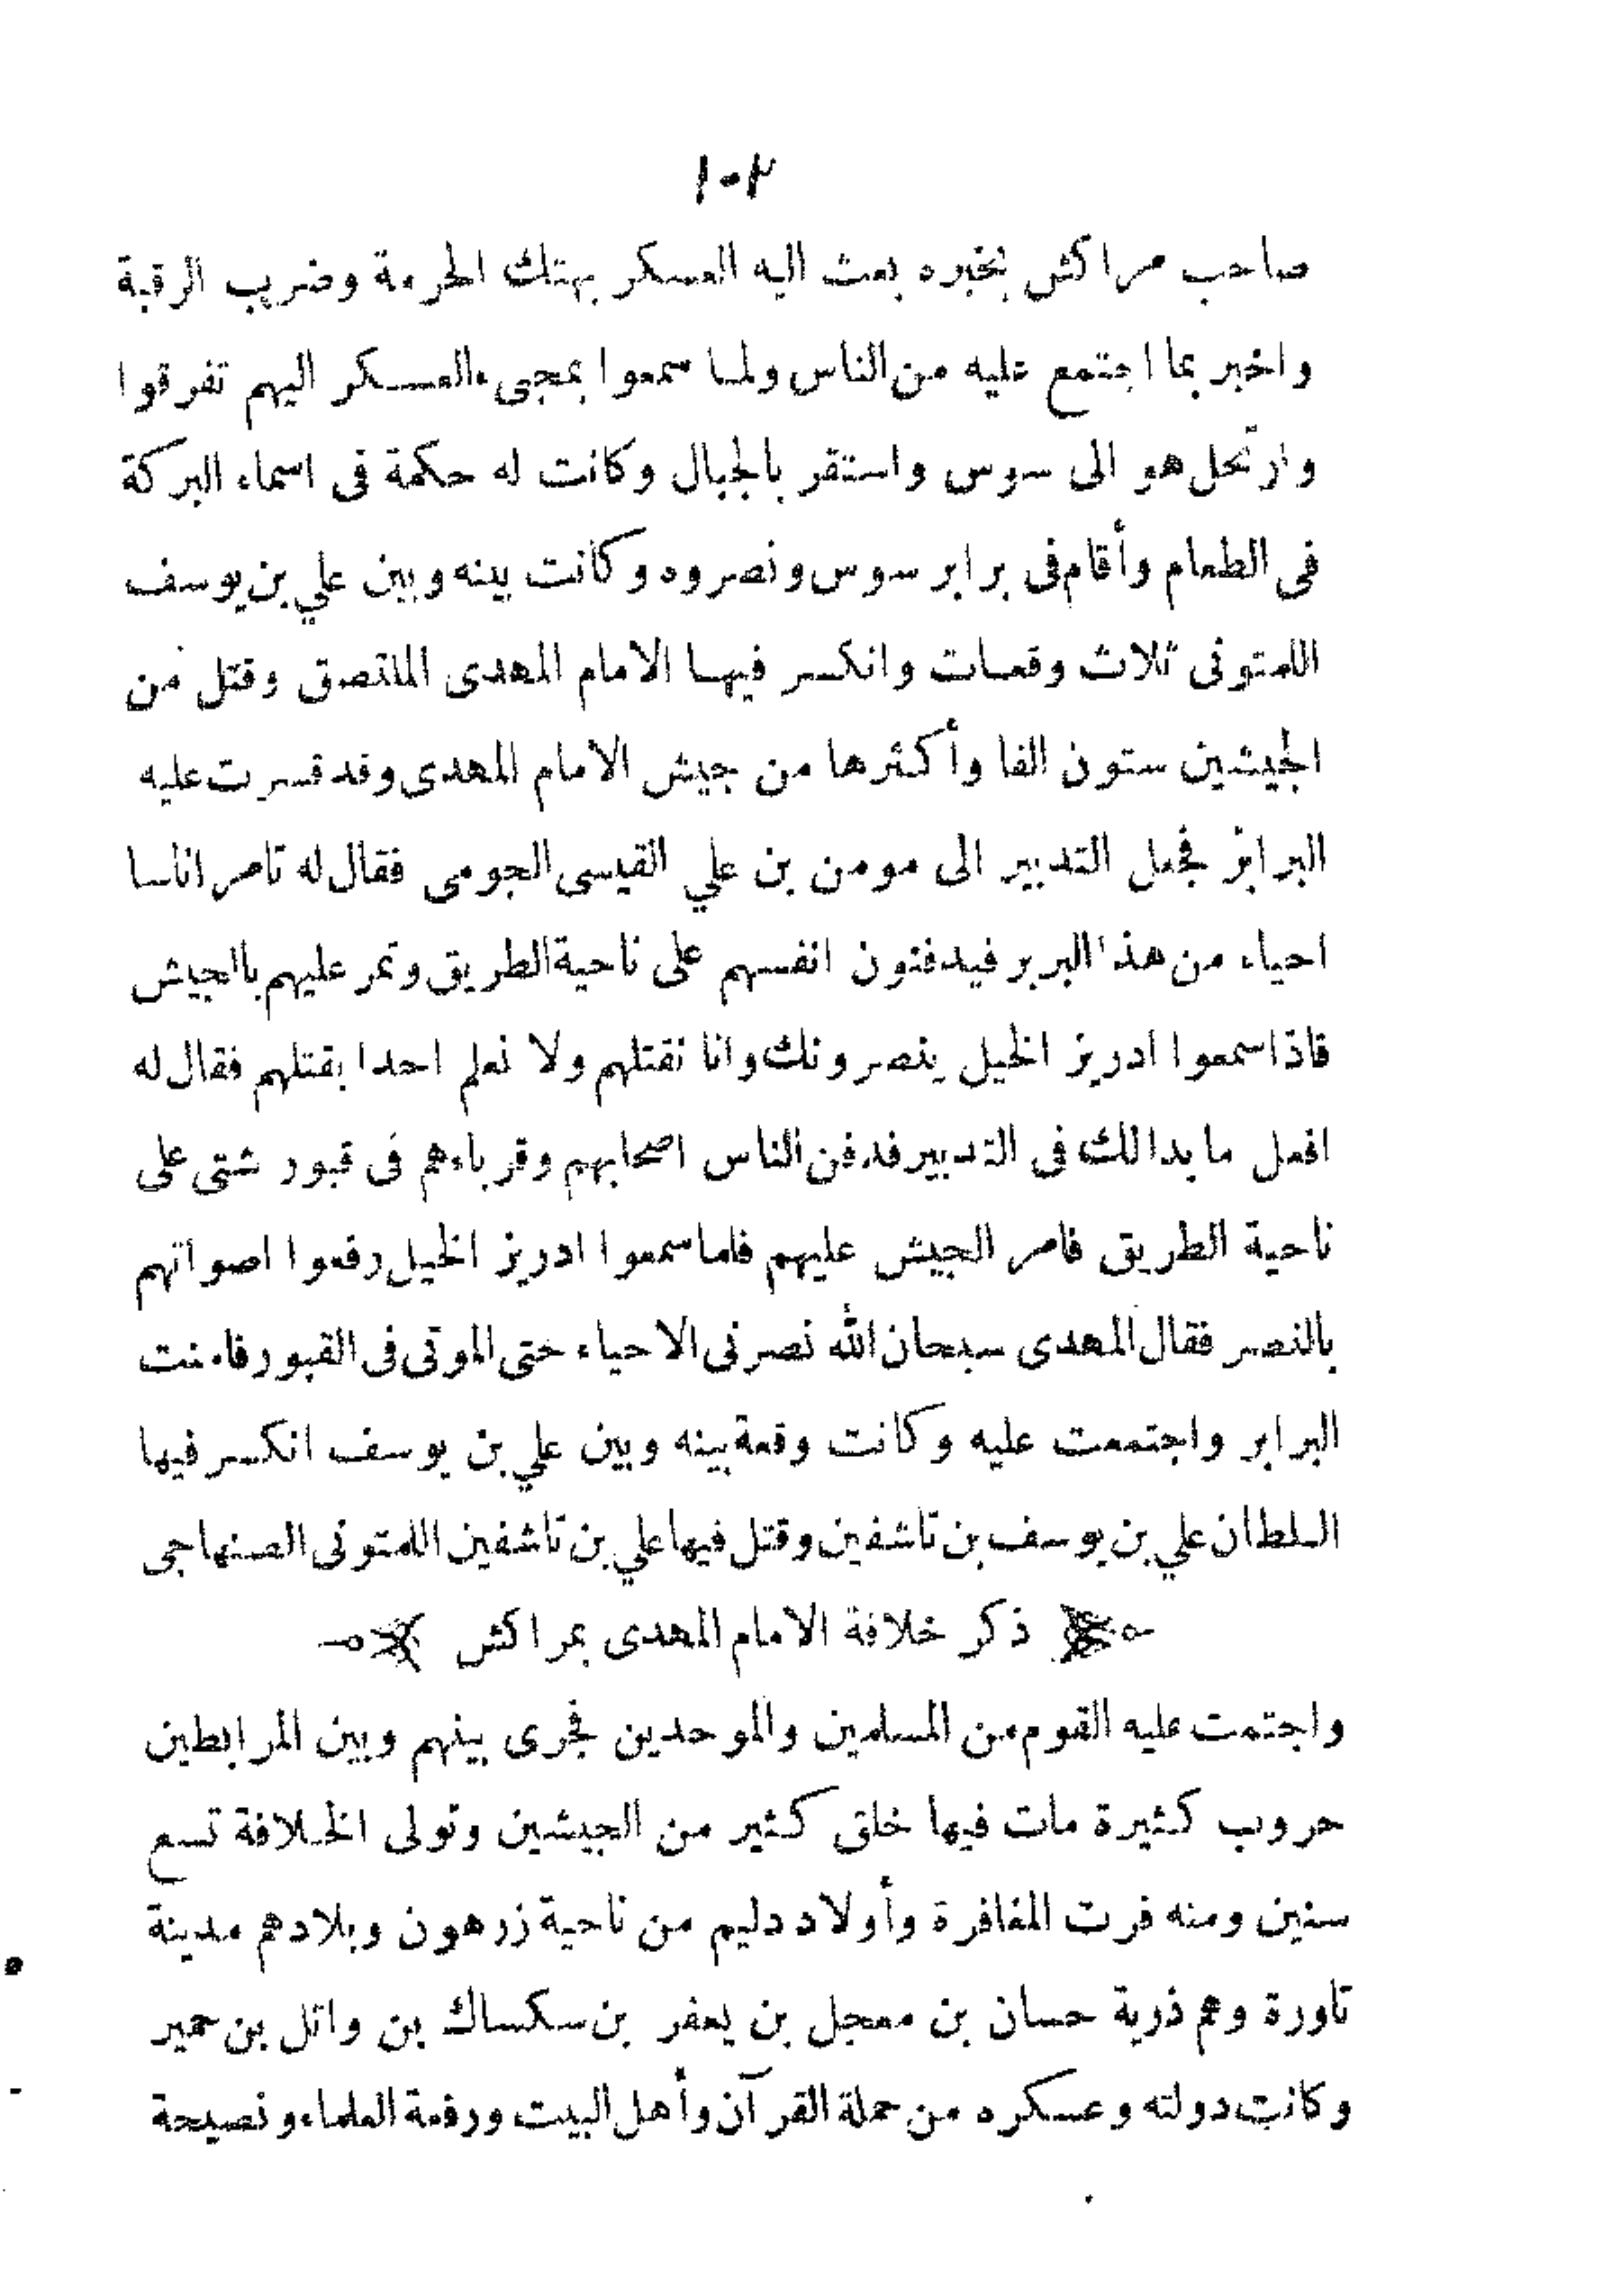 ١٠٢
صاحب مراكش بخبره بعث اليه العسكر بهتك الحرمة وضرب الرقبة
واخبر بما اجتمع عليه من الناس ولما سمعوا بمجىء العسكر اليهم تفرقوا
وارتحل هو الى سوس واستقر بالجبال وكانت له حكمة فى اسماء البركة
فى الطعام وأقام فى برابر سوس ونصروه وكانت بينه وبين علي بن يوسف
اللمتونى ثلاث وقعات وانكسر فيها الامام المهدى الملتصق وقتل من
الجيشين ستون الفا وأكثرها من جيش الامام المهدى وقد قسرت عليه
البرابر فجعل التدبير الى مومن بن علي القيسى الجومى فقال له تامر اناسا
احياء من هذا البربر فيدفنون انفسهم على ناحية الطريق وتمر عليهم باالجيش
فاذا سمعوا ادريز الخيل ينصرونك وانا نقتلهم ولا نعلم احدا بقتلهم فقال له
افعل ما بدالك فى التدبير فدفن الناس اصحابهم وقرباءهم فى قبور شتى على
ناحية الطريق فامر الجيش عليهم فلما سمعوا ادريز الخيل رفعوا اصواتهم
بالنصر فقال المهدى سبحان الله نصرنى الاحياء حتى الموتى فى القبور فاءمنت
البرابر واجتمعت عليه وكانت وقعة بينه وبين علي بن يوسف انكسر فيها
السلطان علي بن يوسف بن تاشفين وقتل فيها علي بن تاشفين اللمتونى الصنهاجى
ذكر خلافة الامام المهدى بمراكش
واجتمت عليه القوم من المسلمين والموحدين فجرى بينهم وبين المرابطين
حروب كثيرة مات فيها خلق كثير من الجيشين وتولى الخلافة تسع
سنين ومنه فرت المغافرة وأولاد دليم من ناحية زرهون وبلادهم مدينة
تاورة وهم ذرية حسان بن معجل بن يعفر بن سكساك بن واتل بن حمير
وكانت دولته وعسكره من حملة القرآن وأهل البيت ورفعة العلماء ونصيحة